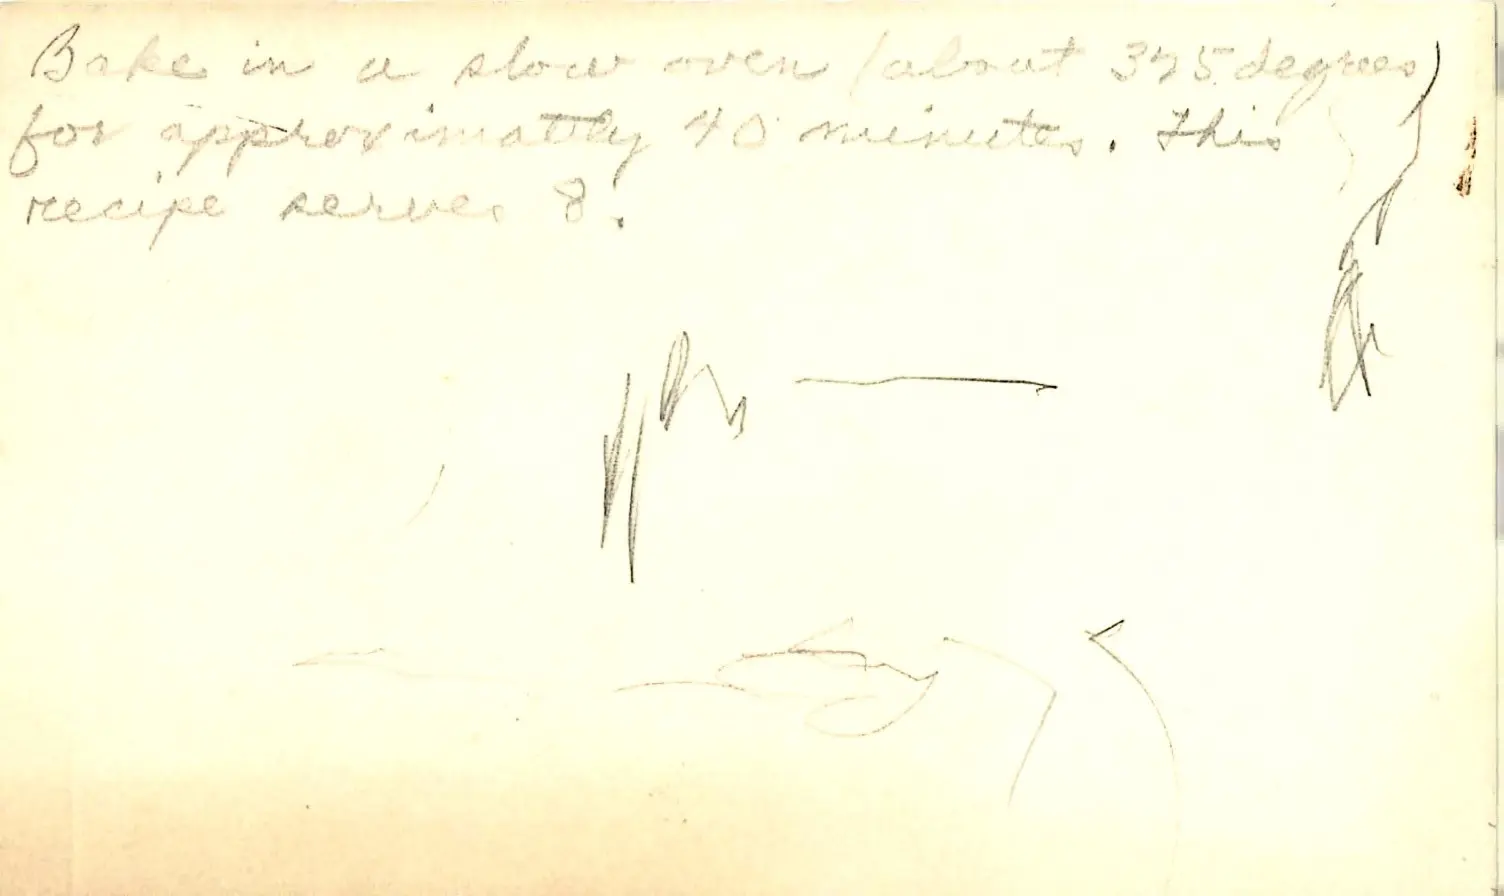 Bake in a slow oven (about 325 degrees)
for approximatly 40 minutes. This
recipe serves 8.